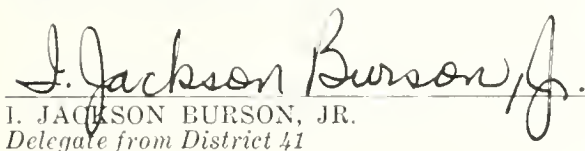 I. Jackson Burson, Jr.
I. JACKSON BURSON, JR.
Delegate from District 41